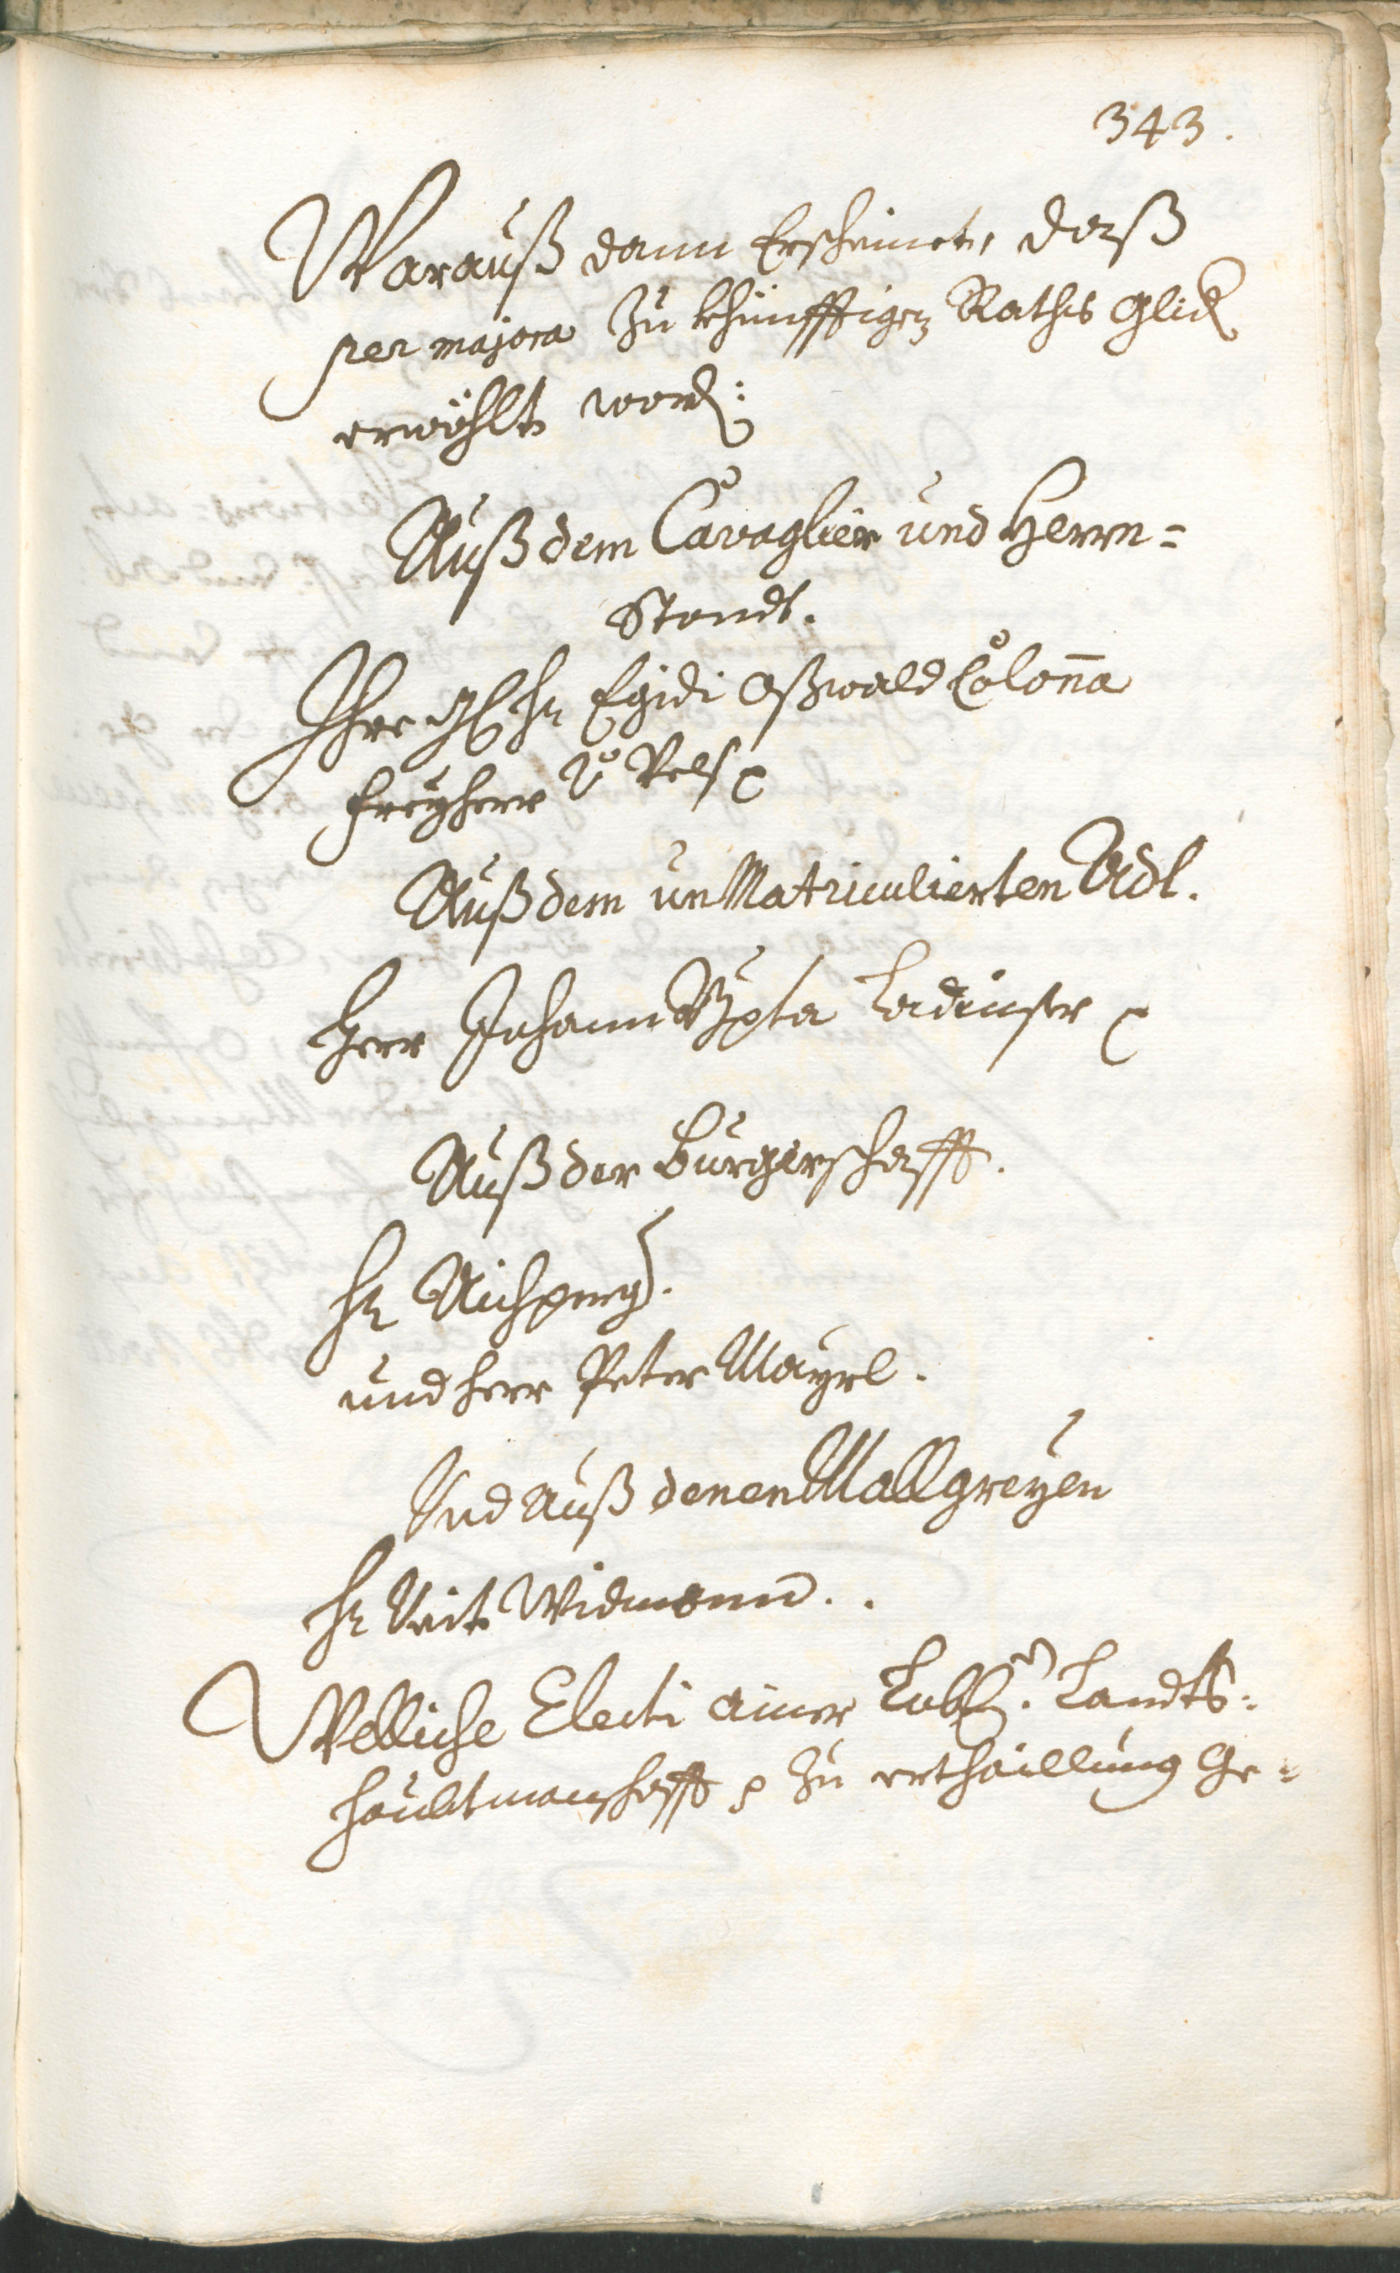 343.
Warauß dann Erscheinet, daß
per majora zu khünfftigen Raths Glid
erwöhlt word:
Auß dem Cavaglier und Herrn=
Standt.
Ihro Hr Egidi Oßwald Colon̄a
Freyherr v Vels
Auß dem un Matriculierten Adl.
Herr Johann Bpta Ladinser
Auß der Burgerschafft.
Hr Aichperg.
und Herr Peter Mayrl.
Und auß denen Mallgreyen
Hr Veit Widmann..
Welliche Electi ainer Lobl. Landts=
haubtmanschafft p zu erthaillung Ge=